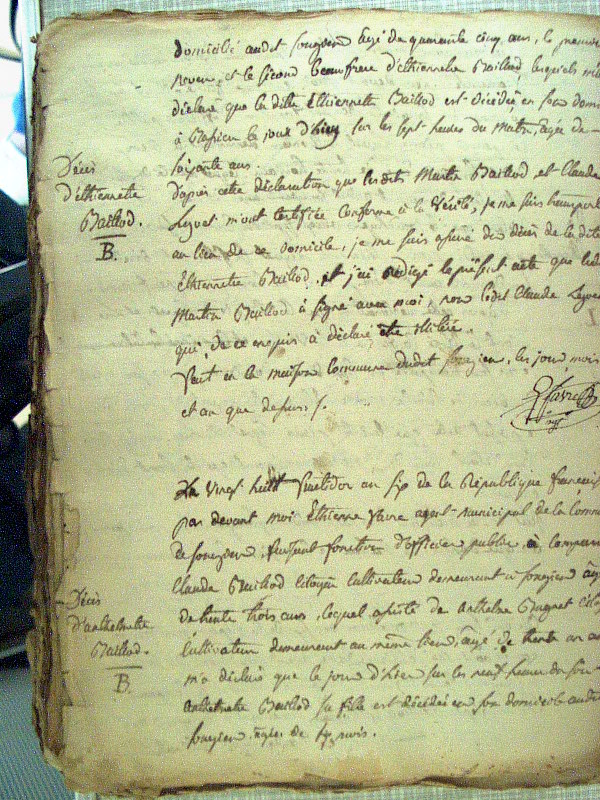 domicilié audit songieu âgé de quarante cinq ans, le premier
neveu, et le second beaufrere d'éthiennette Baillod, lesquels m'ont
déclaré que la dite Ethiennette Baillod est décédée en son domicile
à le jour d'hier sur les sept heures du Matin, agée de
soixante ans.
Décès
d'éthiennette
Baillod.
B.
D'après cette déclaration que lesdits Martin Baillod, et Claude
m'ont Certifiée Conforme à la Vérité, je me suis transporté
au lieu de ce domicile, je me suis assuré du décès de la dite
Ethiennette Baillod, et j'ai rédigé le présent acte que ledit
Martin Baillod à signé avec moi, non ledit Claude
qui de ce enquis à déclaré être illitéré.
fait en la maison Commune dudit songieu, les jour, mois
et an que dessus /.
favre
agt
Du Vingt huit fructidor an six de la République française
par devant moi Ethienne favre agent municipal de la Commune
de songieu, faisant fonction d'officier public, a comparu
Claude Baillod Citoyen Cultivateur demeurant à songieu âgé
de trente trois ans, lequel assisté de Anthelme
Cultivateur demeurant au même lieu, âgé de trente un ans
m'a déclaré que le jour d'hier sur les neuf heures du soir
Décès
d'anthelmette
Baillod.
B.
anthelmette Baillod sa fille est décédée en son domicile audit
songieu agée de six mois.